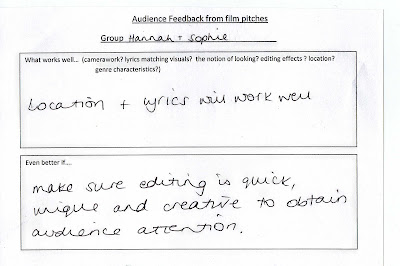 Audience Feedback from film pitches
Group Hannah + Sophie
What works well... (camerawork? lyrics matching visuals? the notion of looking? editing effects? location?
genre characteristics?)
Location + lyrics will work well
Even better if....
make sure editing is quick,
unique and creative to obtain
audience attention.